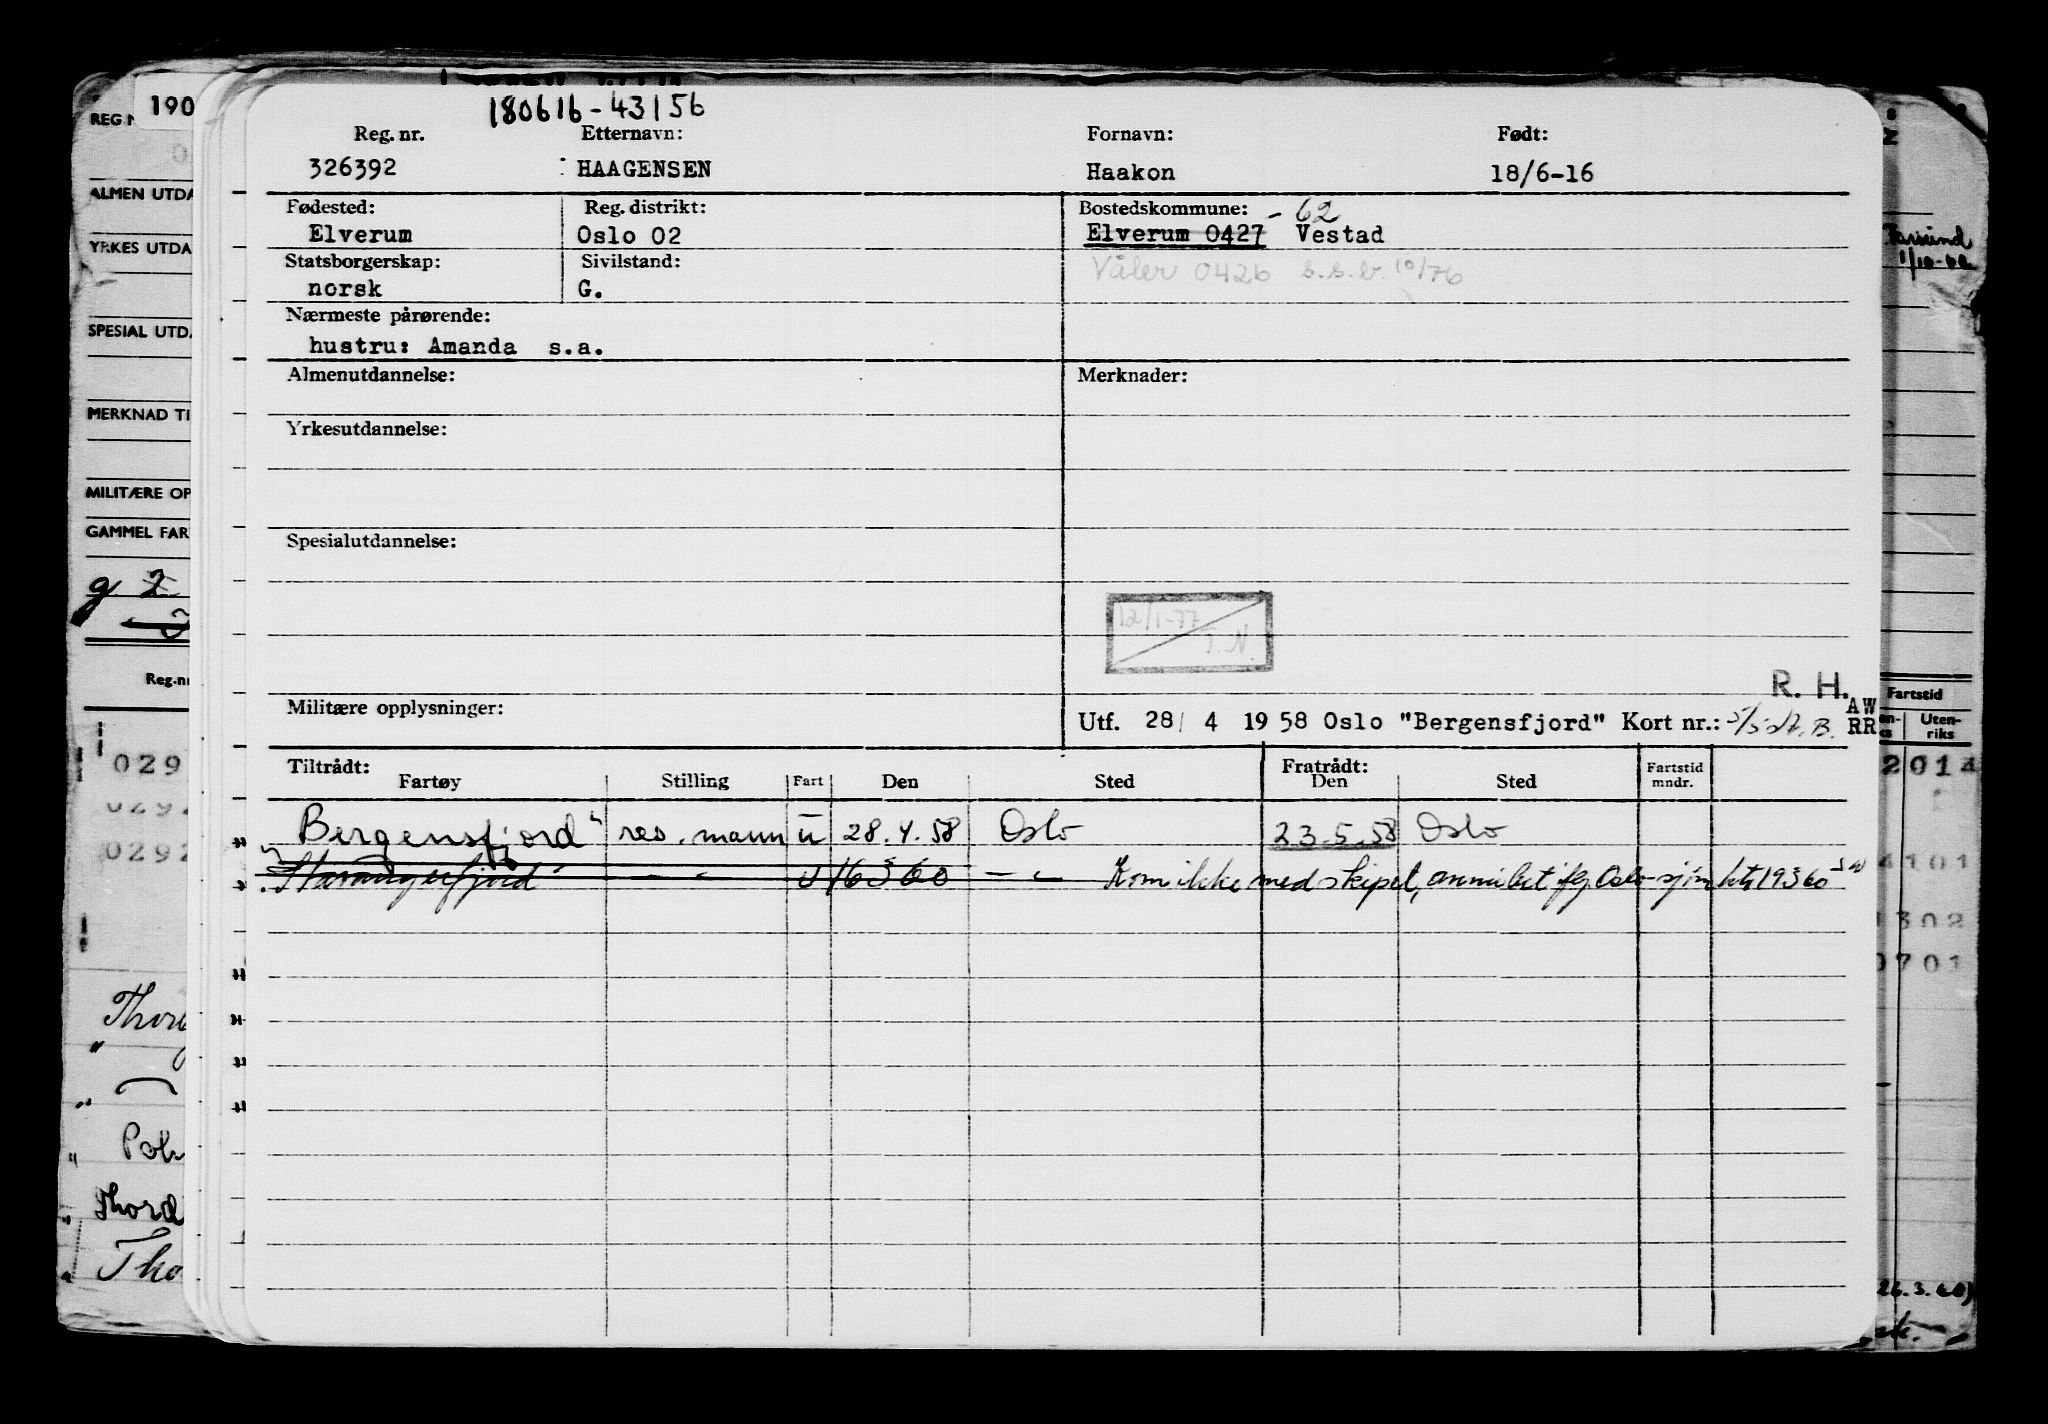 190
REG N
ALMEN UTDA
YRKES UTDA
SPESIAL UTDA
MERKNAD TI
MILITÆRE OP
GAMMEL FAR
g 2
Reg.nr
029
0292
0292
Thor
Pol
Thord
Tho
180616-43156
Reg. nr. Etternavn: Fornavn: Født:
326392 HAAGENSEN Haakon 18/6-16
Fødested: Reg. distrikt: Bostedskommune: - 62
Elverum Oslo 02 Elverum 0427 Vestad
Statsborgerskap: Sivilstand: Våler 0426 s.s.b. 10/76
norsk G.
Nærmeste pårørende:
hustru: Amanda s.a.
Almenutdannelse: Merknader:
Yrkesutdannelse:
Spesialutdannelse:
12/1-77
T.N.
R. H.
Militære opplysninger: Utf. 28/ 4 19 58 Oslo "Bergensfjord" Kort nr.:
AW
RR
Tiltrådt: Fratrådt: Fartstid
Fartøy Stilling Fart Den Sted Den Sted mndr.
Bergensfjord" res. mann u 28.4.58 Oslo 23.5.58 Oslo
"Stavangerfjord" — " — u 16560 — " — Kom ikke med skipet, annulert ifg Oslo sjøm ktr 19560
Farsund
Fartstid
Uten-
riks
2014
4101
302
0701
26.3.60)